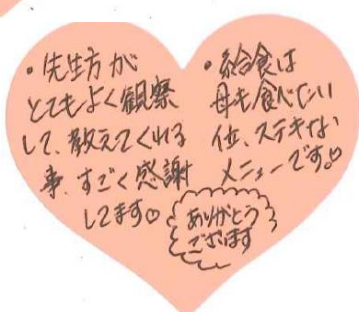 ・先生方が
とてもよく観察
して、教えてくれる
事、すごく感謝
してます♡
・給食は
母も食べたい
位、ステキな
メニューです。♡
ありがとう
ございます